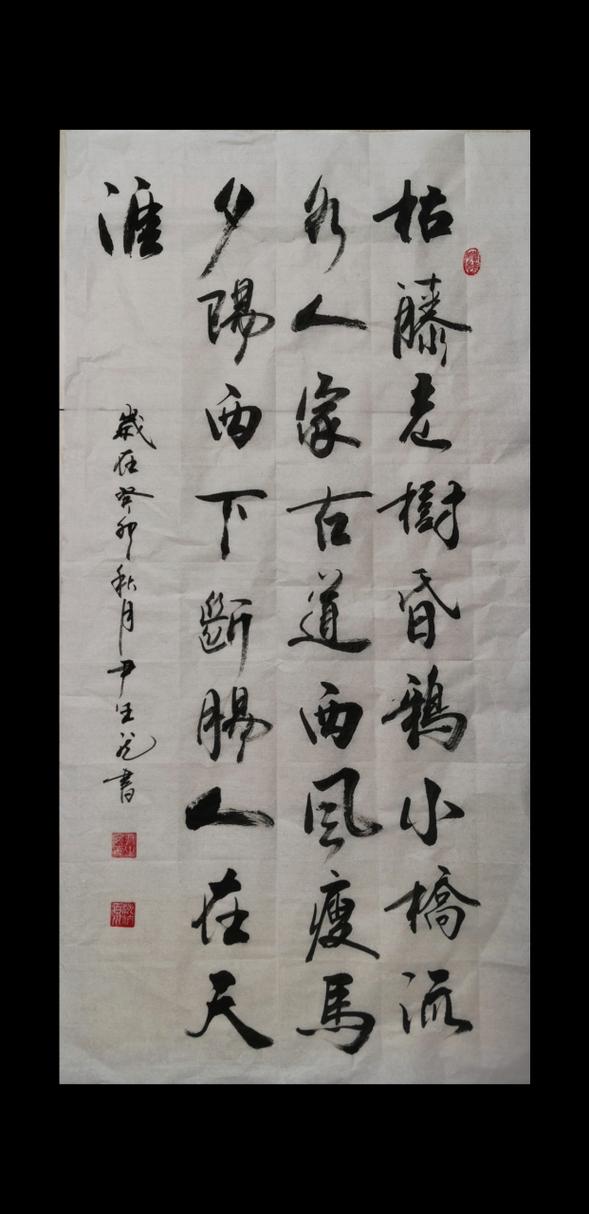 枯藤老樹昏鴉小橋流
水人家古道西風瘦馬
夕陽西下斷腸人在天
涯
歲在癸卯秋月尹生書